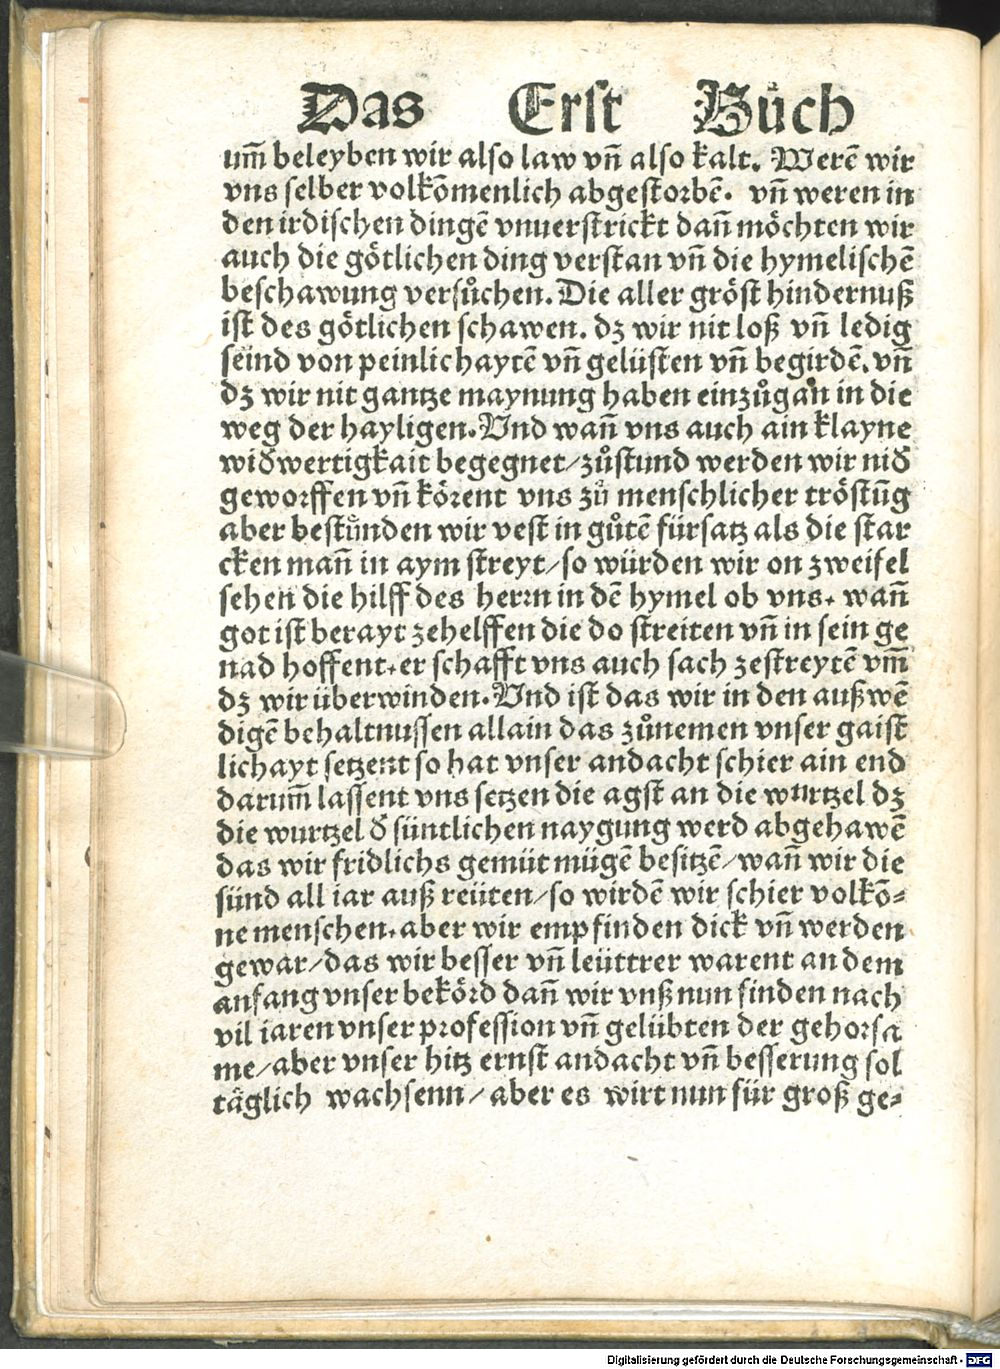 Das Erst Bůch
um̅ beleyben wir also law vn̅ also kalt. Werē wir
vns selber volkōmenlich abgestorbē. vn̅ weren in
den irdischen dingē vnuerstrickt dan̅ möchten wir
auch die götlichen ding verstan vn̅ die hymelischē
beschawung versůchen. Die aller gröst hindernuß
ist des götlichen schawen. dz wir nit loß vn̅ ledig
seind von peinlichaytē vn̅ gelüsten vn̅ begirdē. vn̅
dz wir nit gantze maynung haben einzůgan in die
weg der hayligen. Vnd wan̅ vns auch ain klayne
widwertigkait begegnet/zůstund werden wir nid
geworffen vn̅ körent vns zů menschlicher tröstūg
aber bestůnden wir vest in gůtē fürsatz als die star
cken man̅ in aym streyt/so würden wir on zweifel
sehen die hilff des herrn in dē hymel ob vns. wan̅
got ist berayt zehelffen die do streiten vn̅ in sein ge
nad hoffent. er schafft vns auch sach zestreytē vm̅
dz wir überwinden. Vnd ist das wir in den außwē
digē behaltnussen allain das zůnemen vnser gaist
lichayt setzent so hat vnser andacht schier ain end
darum̅ lassent vns setzen die agst an die wurtzel dz
die wurtzel d süntlichen naygung werd abgehawē
das wir fridlichs gemüt mügē besitzē/wan̅ wir die
sünd all iar auß reüten/so wirdē wir schier volkō⸗
ne menschen. aber wir empfinden dick vn̅ werden
gewar/das wir besser vn̅ leüttrer warent an dem
anfang vnser bekörd dan̅ wir vnß nun finden nach
vil iaren vnser profession vn̅ gelübten der gehorsa
me/aber vnser hitz ernst andacht vn̅ besserung sol
täglich wachsenn/aber es wirt nun für groß ge⸗
Digitalisierung gefördert durch die Deutsche Forschungsgemeinschaft - DFG